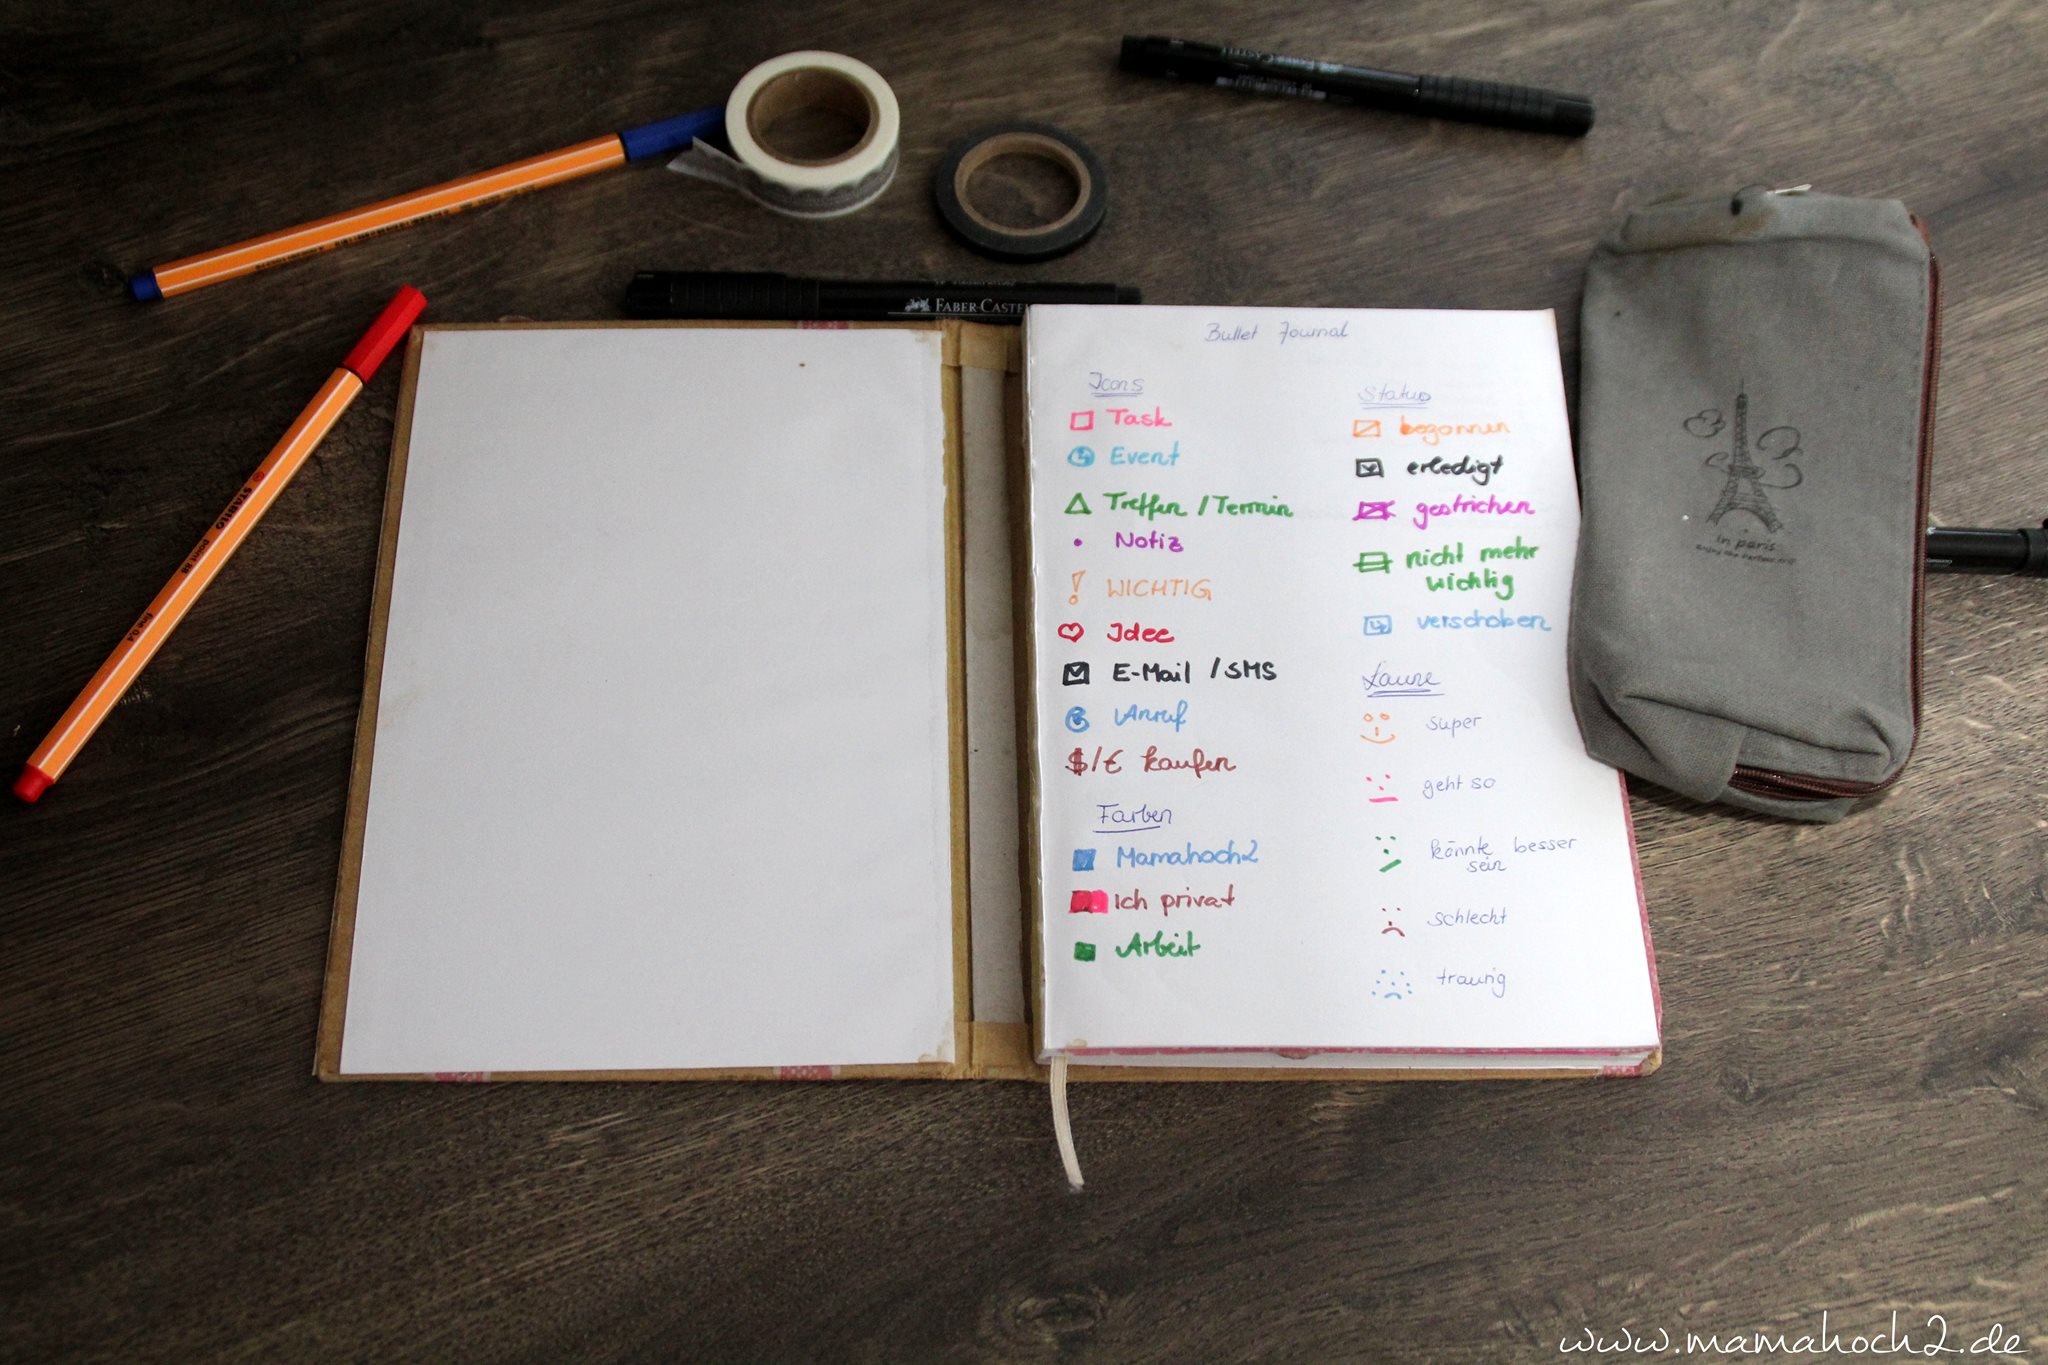 FABER-CASTEL
STABILO
point 88
fine 0,4
Bullet Journal
Icons
Task
Event
Treffen / Termin
Notiz
! WICHTIG
Idee
E-Mail / SMS
Anruf
$/€ kaufen
Farben
Mamahoch2
Ich privat
Arbeit
Status
begonnen
erledigt
gestrichen
nicht mehr
wichtig
verschoben
Laune
super
geht so
könnte besser
sein
schlecht
traurig
in paris
www.mamahoch2.de